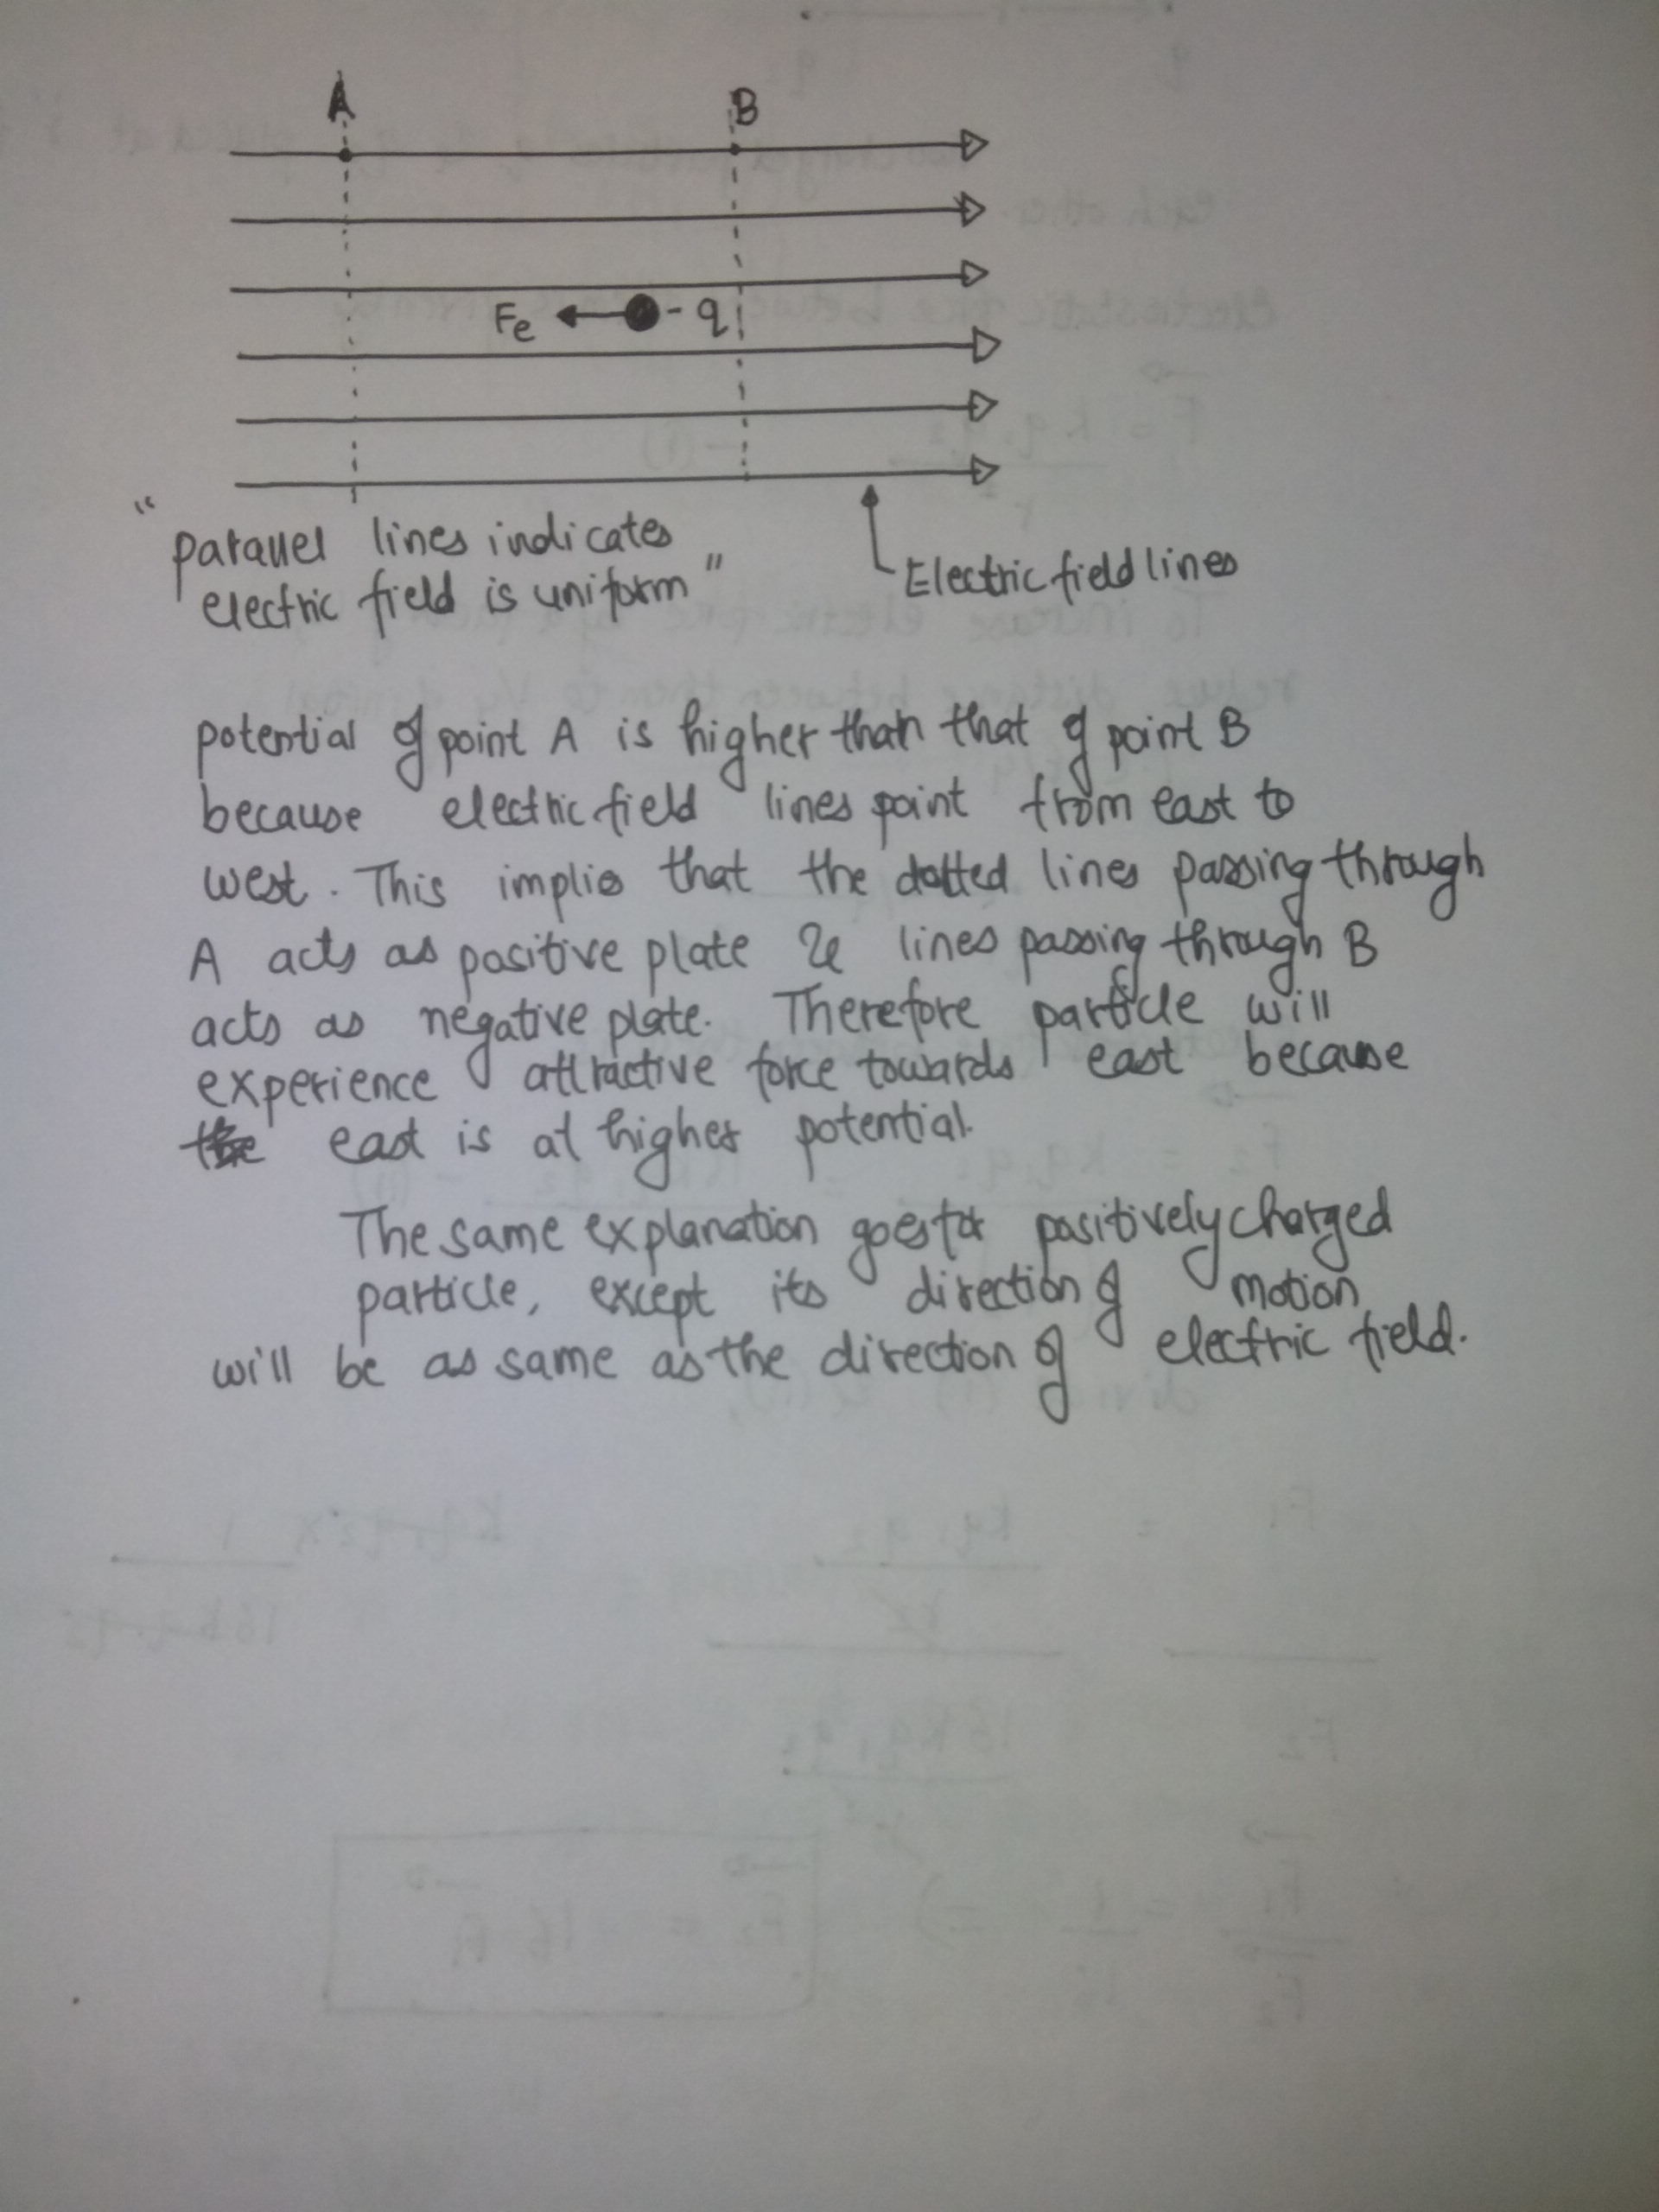 A
B
Fe
- q
"parallel lines indicates
electric field is uniform"
Electric field lines
potential of point A is higher than that of point B
because electric field lines point from east to
west. This implies that the dotted lines passing through
A acts as positive plate & lines passing through B
acts as negative plate. Therefore particle will
experience attractive force towards east because
east is at higher potential.
The same explanation goes for positively charged
particle, except its direction of motion
will be as same as the direction of electric field.